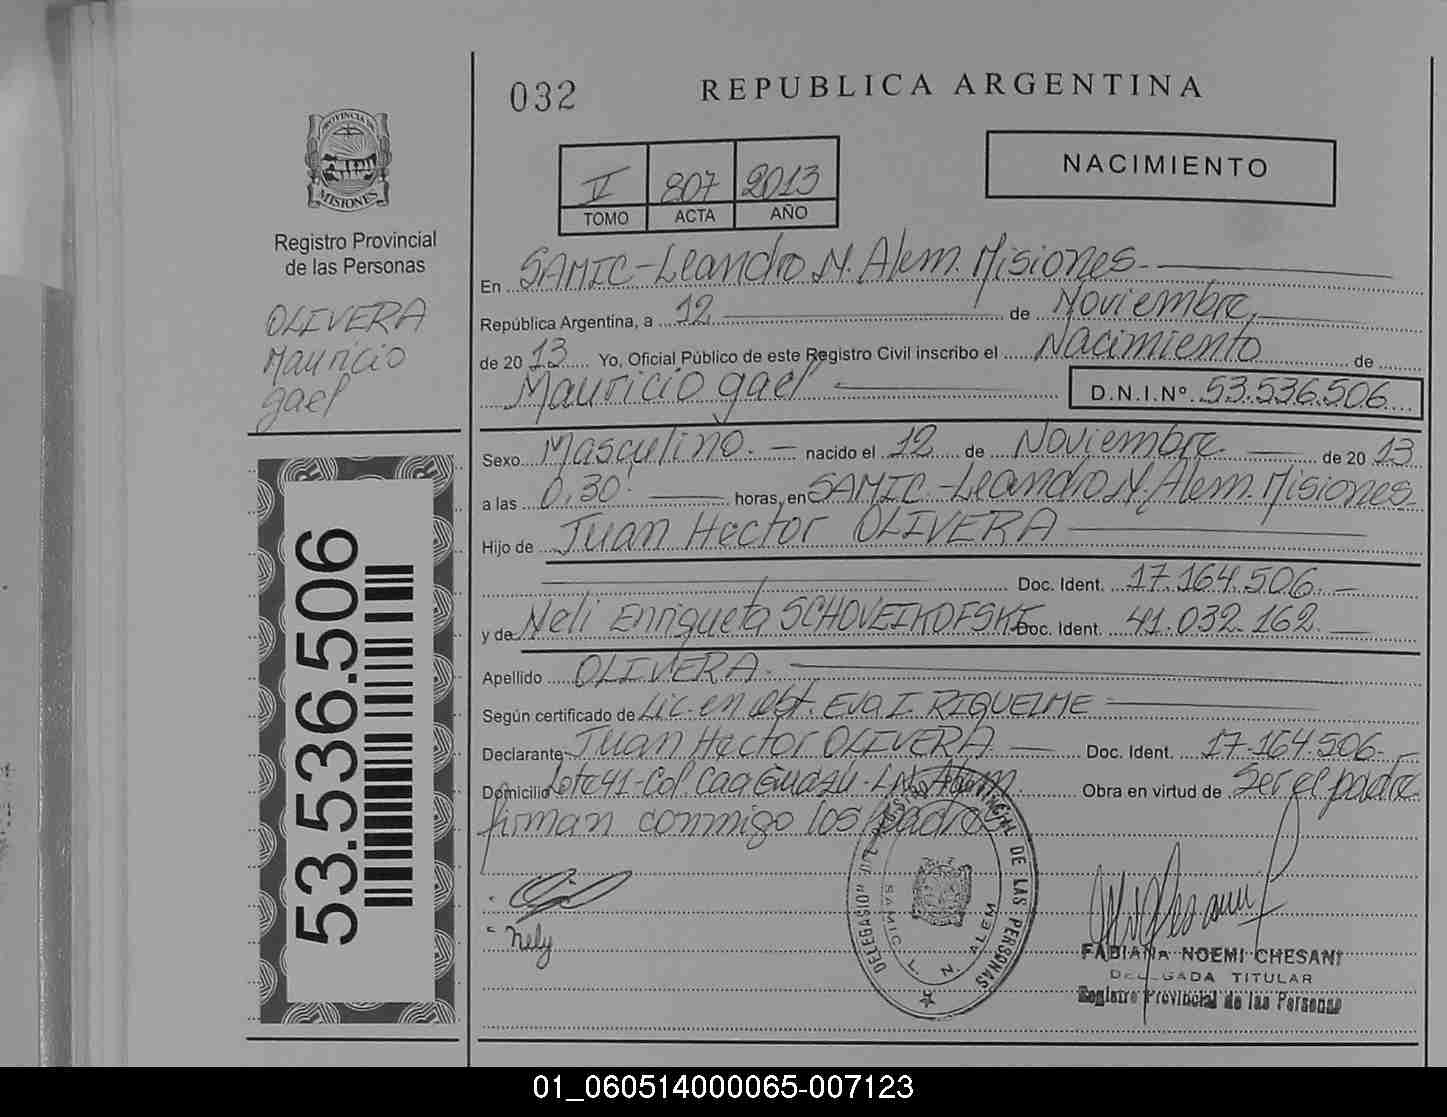 032
REPUBLICA ARGENTINA
PROVINCIA DE
MISIONES
II 807 2013
TOMO ACTA AÑO
NACIMIENTO
Registro Provincial
de las Personas
OLIVERA
Mauricio
gael
53.536.506
En SAMIC-Leandro N. Alem. Misiones.
República Argentina, a 12 de Noviembre,
de 2013 Yo, Oficial Público de este Registro Civil inscribo el Nacimiento de
Mauricio gael D.N.I.Nº 53.536.506
Sexo Masculino. nacido el 12 de Noviembre. de 2013
a las 0.30' horas, en SAMIC.-Leandro N. Alem. Misiones
Hijo de Juan Hector OLIVERA
Doc. Ident. 17.164.506.
y de Neli Enriqueta SCHOVEIKOFSKI Doc. Ident. 41.032.162.
Apellido OLIVERA.
Según certificado de Lic. en obst. Eva I. RIQUELME
Declarante Juan Hector OLIVERA Doc. Ident. 17.164.506.
Domicilio Lote 41-Col Caa Guazu-L.N. Alem Obra en virtud de Ser el padre
firman conmigo los padres
Nely
DELEGACION DEL REGISTRO PROVINCIAL DE LAS PERSONAS
SAMIC L. N. ALEM
FABIANA NOEMI CHESANI
DELEGADA TITULAR
Registro Provincial de las Personas
01_060514000065-007123